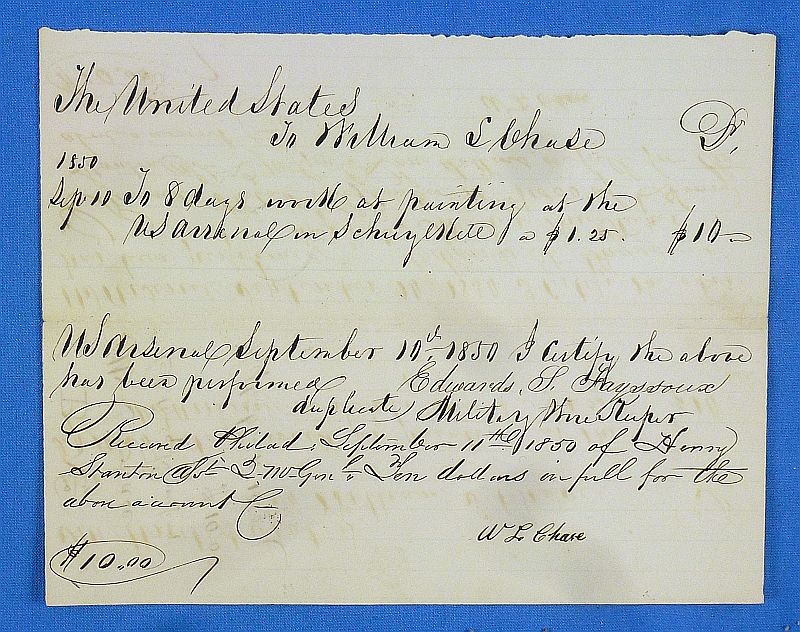 The United States
To William L Chase Dr,
1850
Sep 10 To 8 days work at painting at the
US Arsenal in Schuylkill a $1.25. $10—
US Arsenal September 10th, 1850 I certify the above
has been performed Edwards. S. Fayssoux
duplicate Military Store Keeper
Received Philad; September 11th 1850 of Henry
Stanton Asst Q-M-Genl Ten dollars in full for the
above account
W L Chase
$10.00